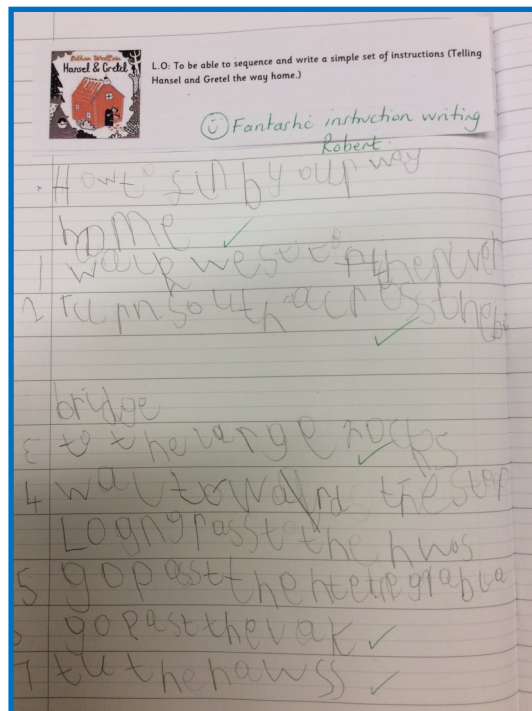 Bethan Woollvin
Hansel & Gretel
L.O: To be able to sequence and write a simple set of instructions (Telling
Hansel and Gretel the way home.)
Fantastic instruction writing
Robert.
How to your way
home
1 walk west to the river
2 Turn south across the b
bridge
3 to the large rocks
4 wal towards the step
Logng passt the hwos
5 go passt the
go past the lak
7 tu the hawss